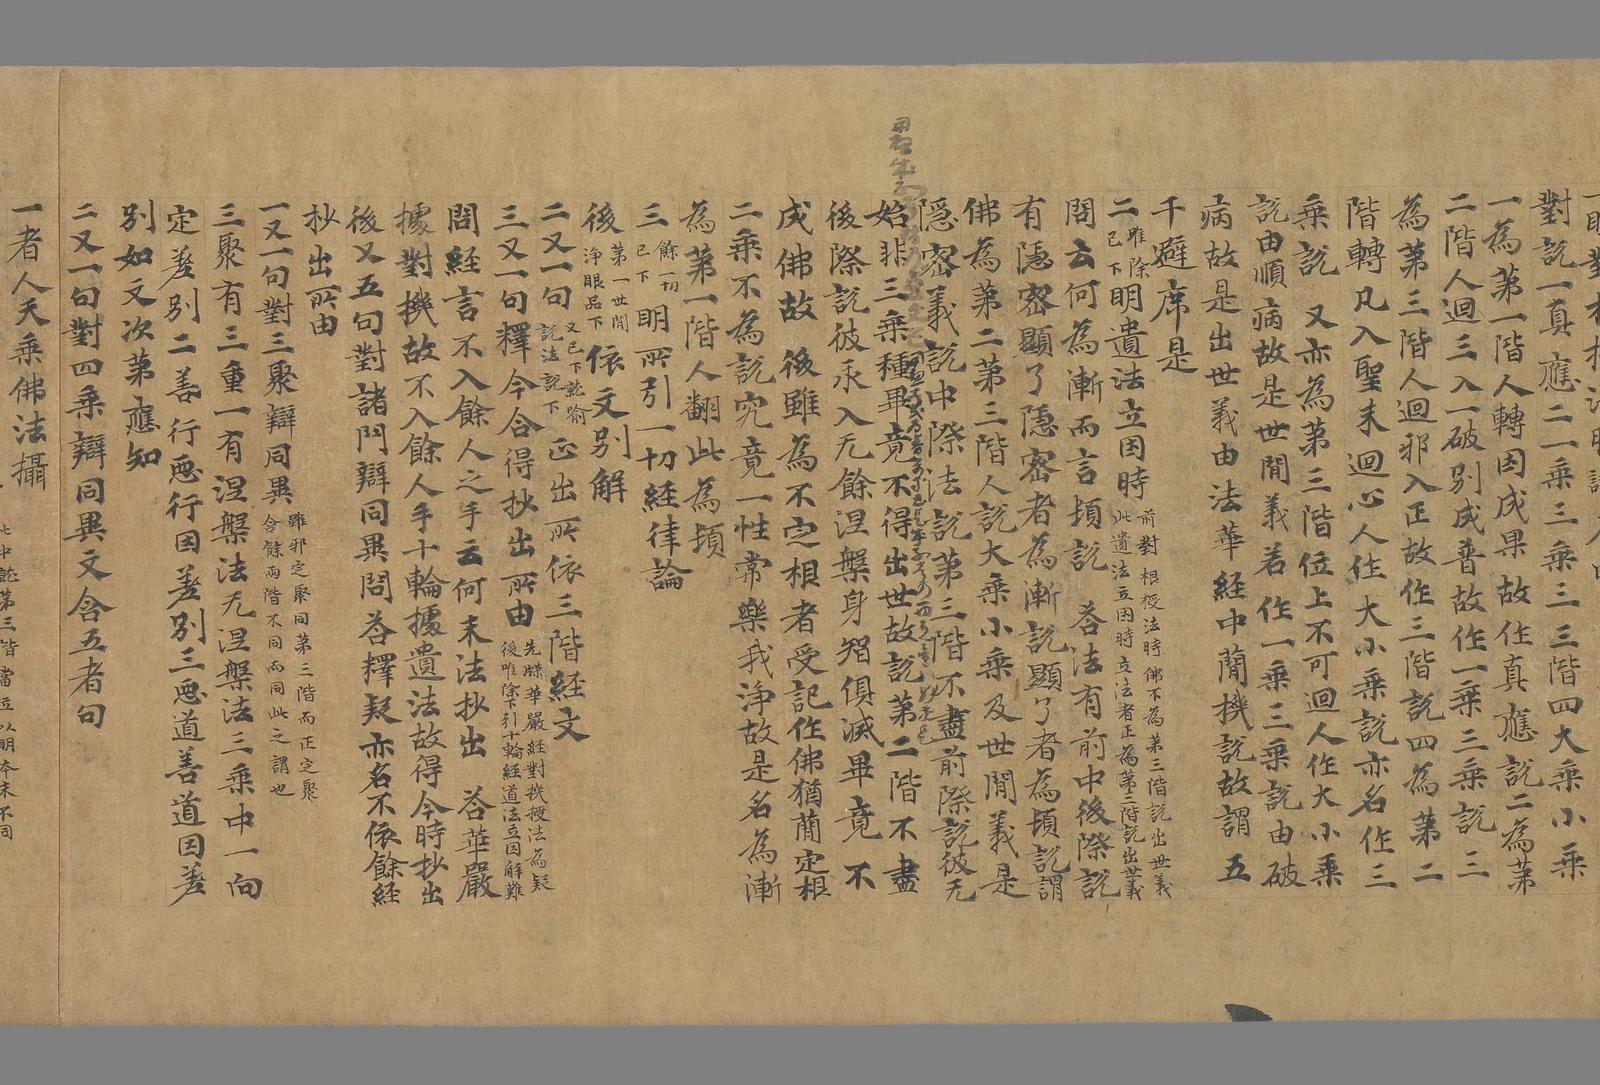 對說一真應二一乘三乘三三階四大乘小乘
一為第一階人轉因成果故作真應說二為第
二階人迴三入一破別成普故作一乘三乘說三
為第三階人迴邪入正故作三階說四為第二
階轉凡入聖未迴心人作大小乘說亦名作三
乘說 又亦為第三階位上不可迴人作大小乘
說由順病故是世間義若作一乘三乘說由破
病故是出世義由法華經中蕳機說故謂五
千避席是
二唯除已下明遺法立因時前對根授法時佛不為第三階說出世義此遺法立因時立法者正為第三階說出世義
問云何為漸而言頓說 荅法有前中後際說
有隱密顯了隱密者為漸說顯了者為頓說謂
佛為第二第三階人說大乘小乘及世間義是
隱密義說中際法說第三階不盡前際說彼无
始非三乘種畢竟不得出世故說第二階不盡
後際說彼永入无餘涅槃身智俱滅畢竟不
成佛故 後雖為不定相者受記作佛猶蕳定相
二乘不為說究竟一性常樂我淨故是名為漸
為第一階人翻此為頓
三餘一切已下明所引一切經律論
後第一世間淨眼品下依文別解
二又一句又已下訖喻說法說下正出所依三階經文
三又一句釋今合得抄出所由先牒華嚴經對機授法為疑後唯除下引十輪經遺法立因解難
問經言不入餘人之手云何末法抄出 荅華嚴
據對機故不入餘人手十輪據遺法故得今時抄出
後又五句對諸門辯同異問荅釋疑亦名不依餘經
抄出所由
一又一句對三聚辯同異雖邪定聚同第三階而正定聚含餘兩階不同而同此之謂也
三聚有三重一有涅槃法无涅槃法三乘中一向
定差別二善行惡行因差別三惡道善道因差
別如文次第應知
二又一句對四乘辯同異文含五者句
一者人天乘佛法攝